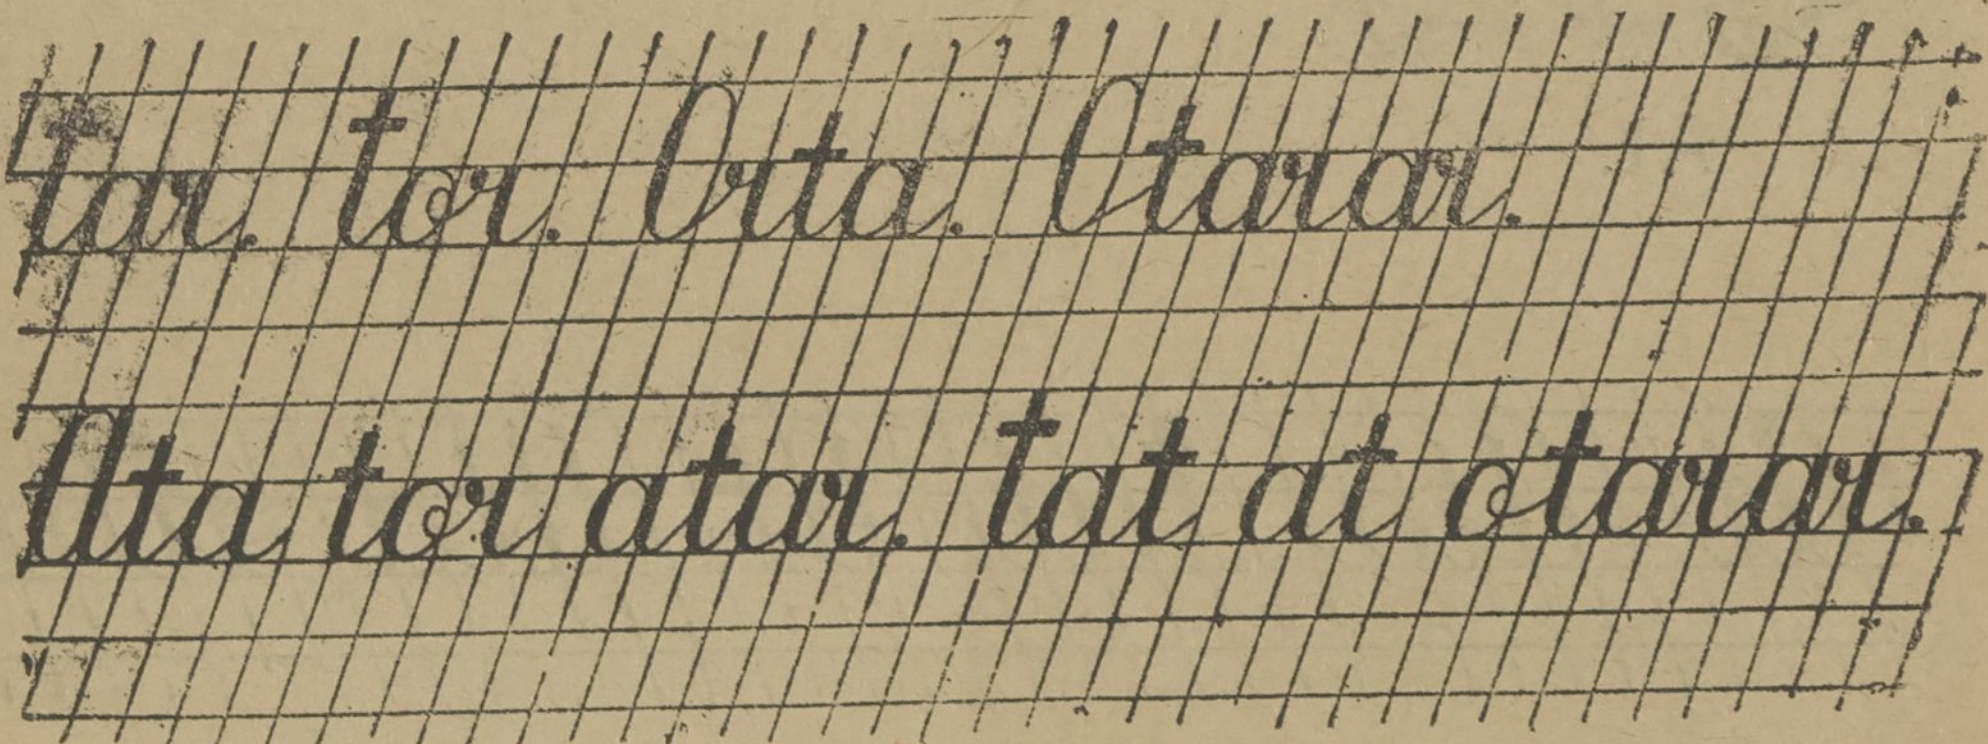 Tar. Tor. Orta. Otarar.
Ata tor atar. Tat at otarar.